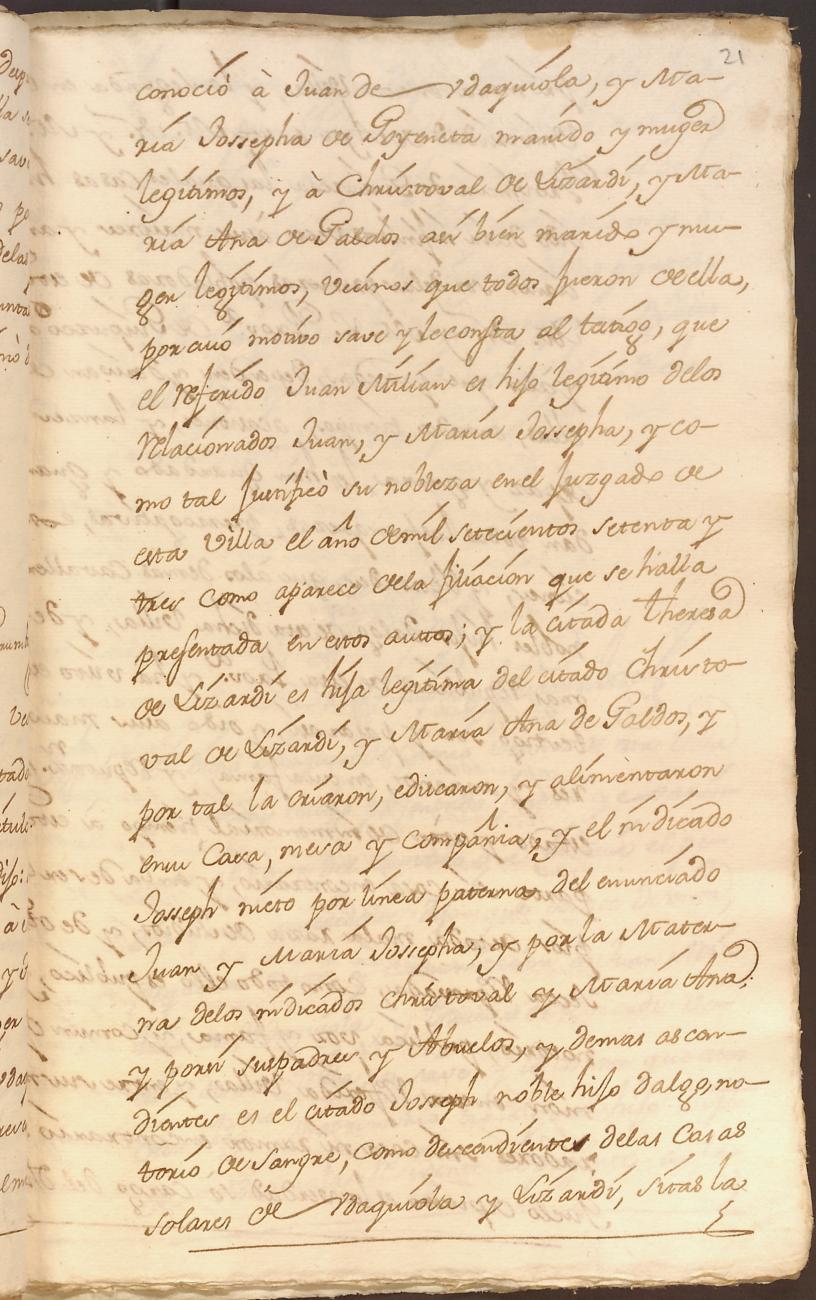 21
conoció à Juan de Vdaquiola, y Ma-
ria Jossepha de Goyeneta marido y muger
legitimos, y à Christoval de Lizardi, y Ma-
ria Ana de Galdos asi bien marido y mu-
ger legitimos, vecinos que todos fueron de ella,
por cuió motivo save y le consta al testigo, que
el referido Juan Milian es hijo legitimo delos
relacionados Juan, y Maria Jossepha, y co-
mo tal justificò su nobleza en el Juzgado de
esta Villa el año de mil setecientos setenta y
tres como aparece dela filiacion que se halla
presentada en estos auttos; y la citada Theresa
de Lizardi es hija legitima del citado Christo-
val de Lizardi, y Maria Ana de Galdos, y
por tal la criaron, educaron, y alimentaron
en su Casa, mesa y Compañia, y el indicado
Joseph nieto por linea paterna del enunciado
Juan y Maria Jossepha; y por la Mater-
na delos indicados Christoval y Maria Ana:
y por sí sus padres y Abuelos, y demas ascen-
dientes es el citado Joseph noble hijo dalgo, no-
torio de sangre, como descendientes delas Casas
solares de Vdaquiola y Lizardi, sitas la